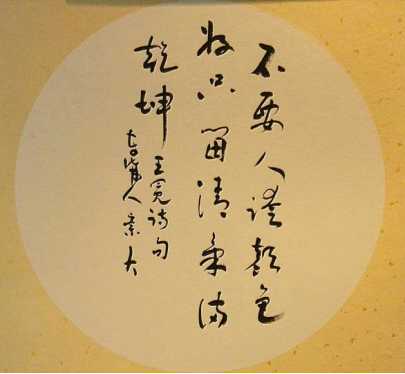 不要人誇顏色
好只留清氣滿
乾坤
王冕詩句